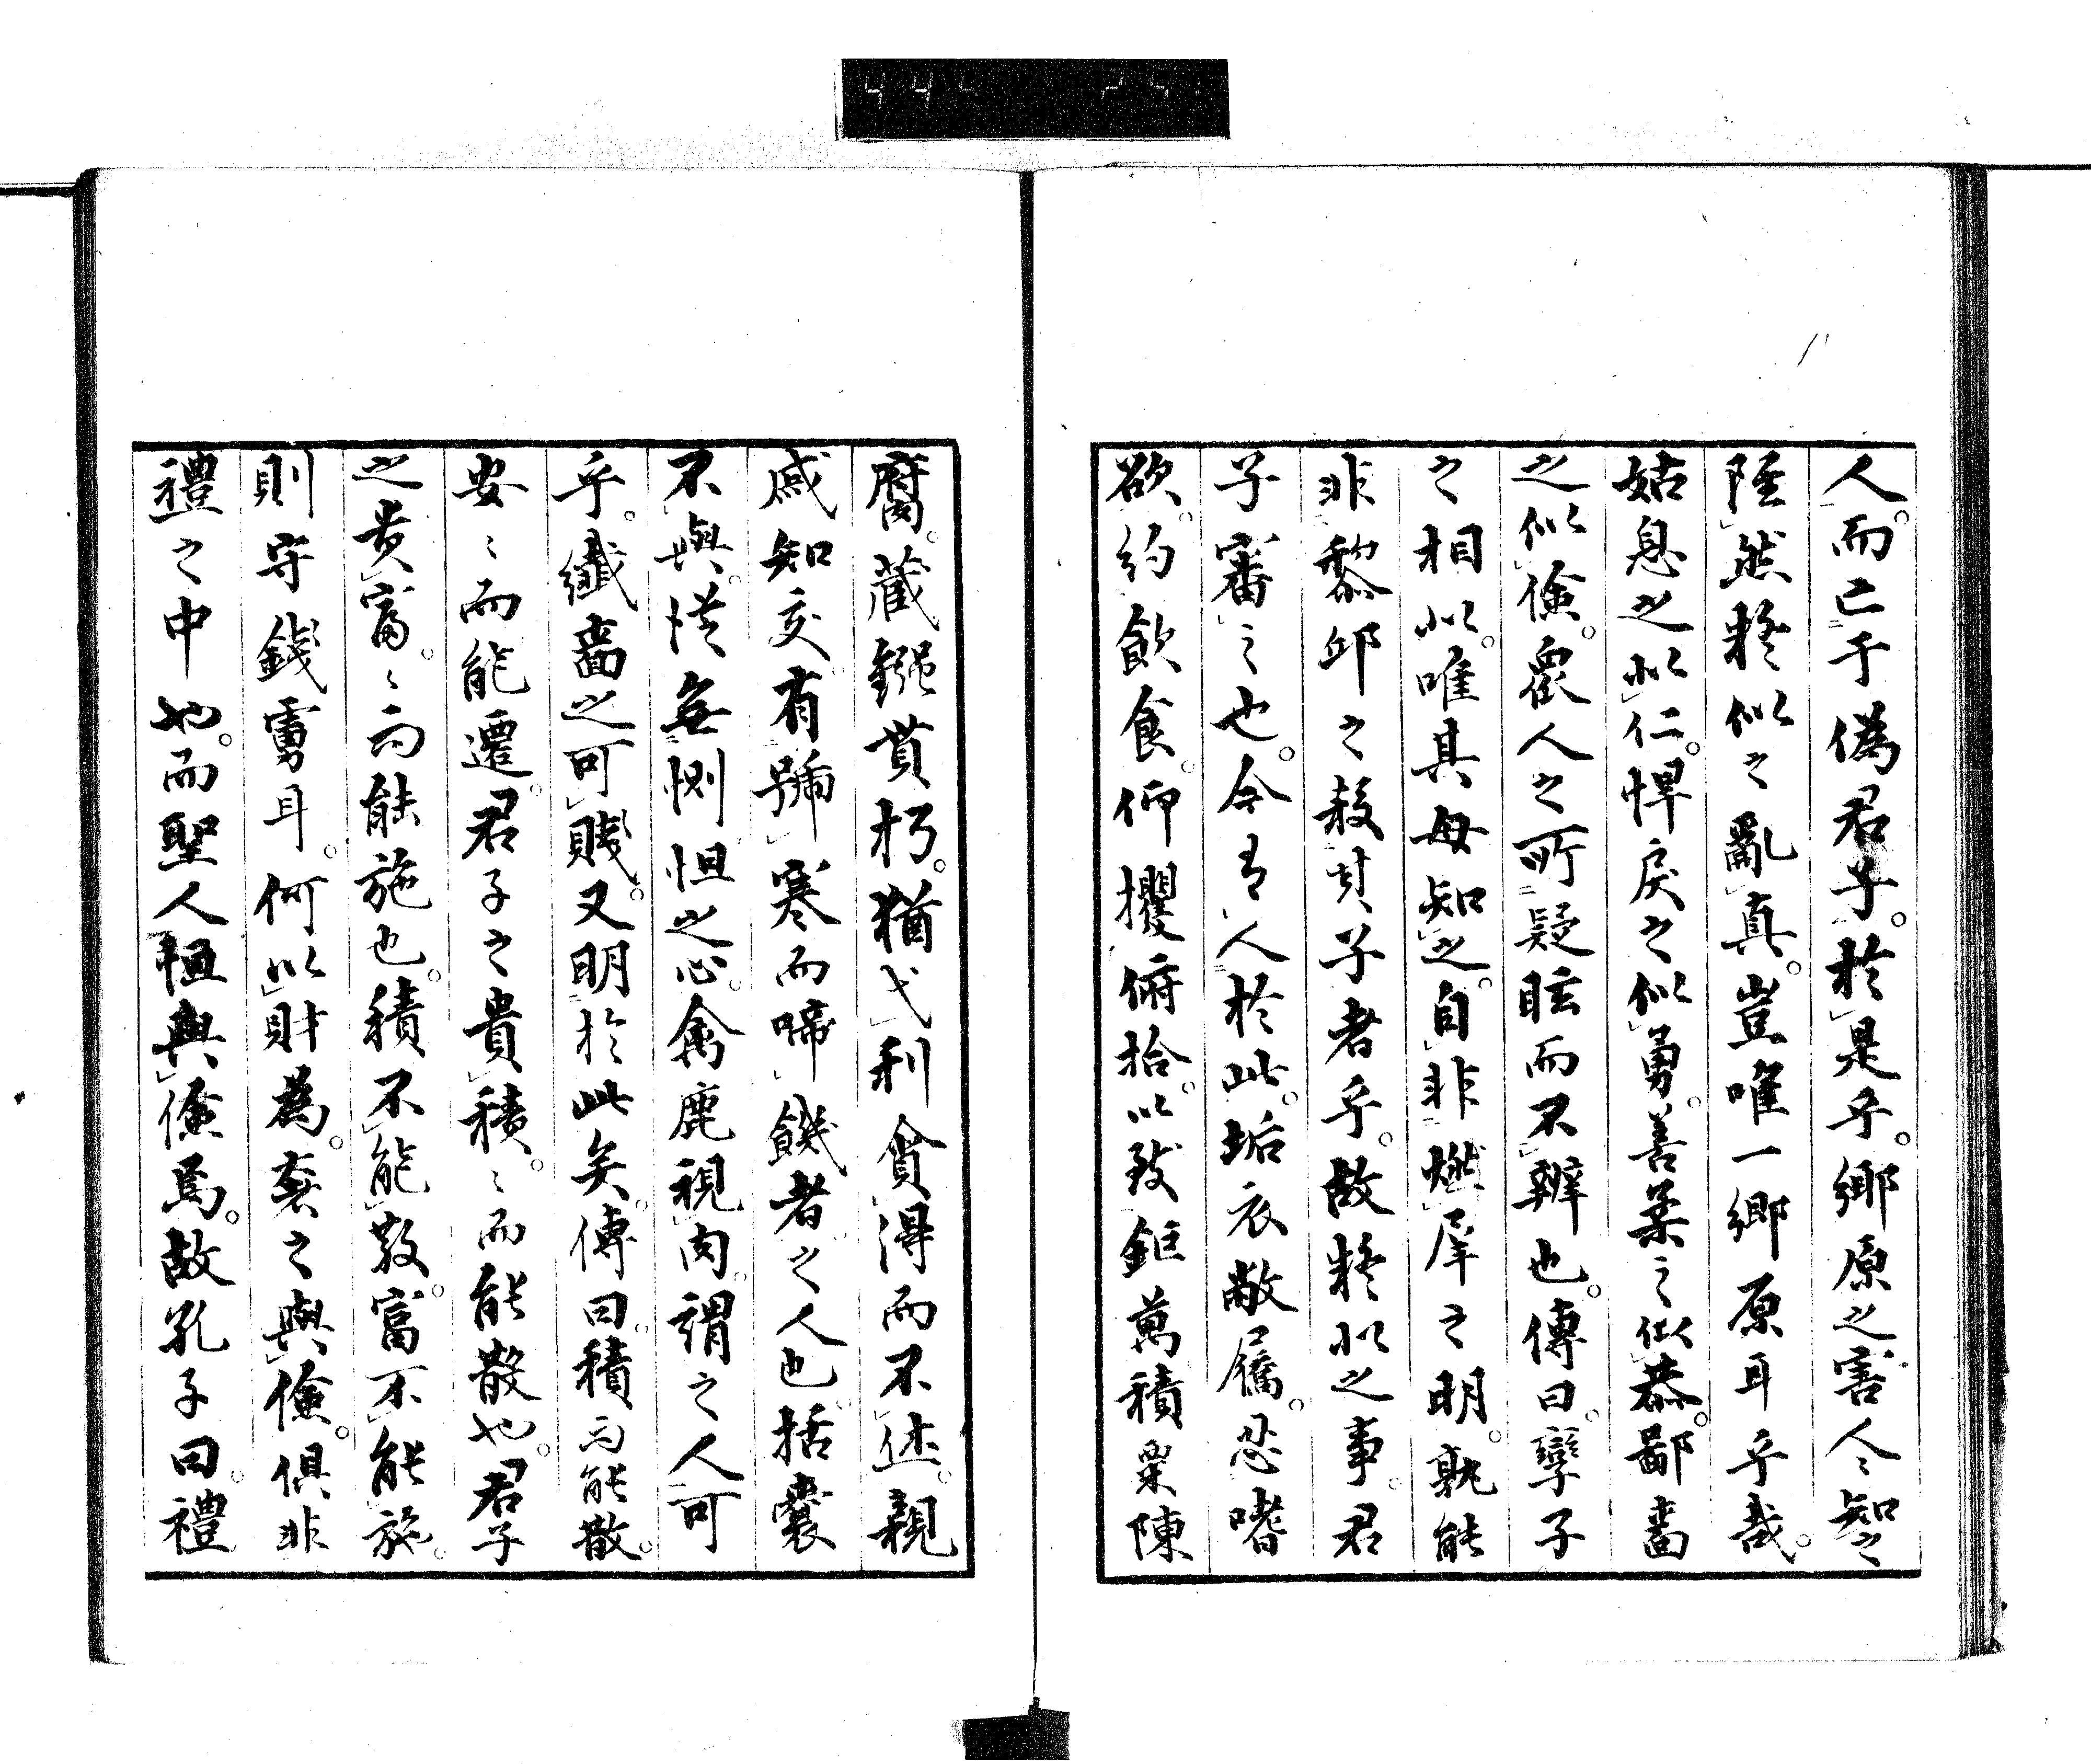 人而亡于偽君子於是乎鄉原之害人令智之
陲然疑似之亂真豈唯一鄉原耳乎哉
姑息之似仁悍戾之似勇善柔之似恭鄙嗇
之似儉眾人之所疑眩而不辨也傳曰孿子
之相似唯其母知之自非燃犀之明孰能
非黎邱之殺其子者乎故疑似之事君
子審之也今有人於此垢衣敝屩忍嗜
欲約飲食仰攫俯拾以致鉅萬積粟陳
腐藏鏹貫朽猶弋利貪得而不述親
戚知交有號寒而啼饑者之人也括囊
不與恍無惻怛之心禽鹿視肉謂之人可
乎纖嗇之可賤又明於此矣傳曰積而能散
安々而能遷君子之貴積々而能散也君子
之貴富々而能施也積不能散富不能施
則守錢虜耳何以財為奢之與儉俱非
禮之中也而聖人恒與儉焉故孔子曰禮